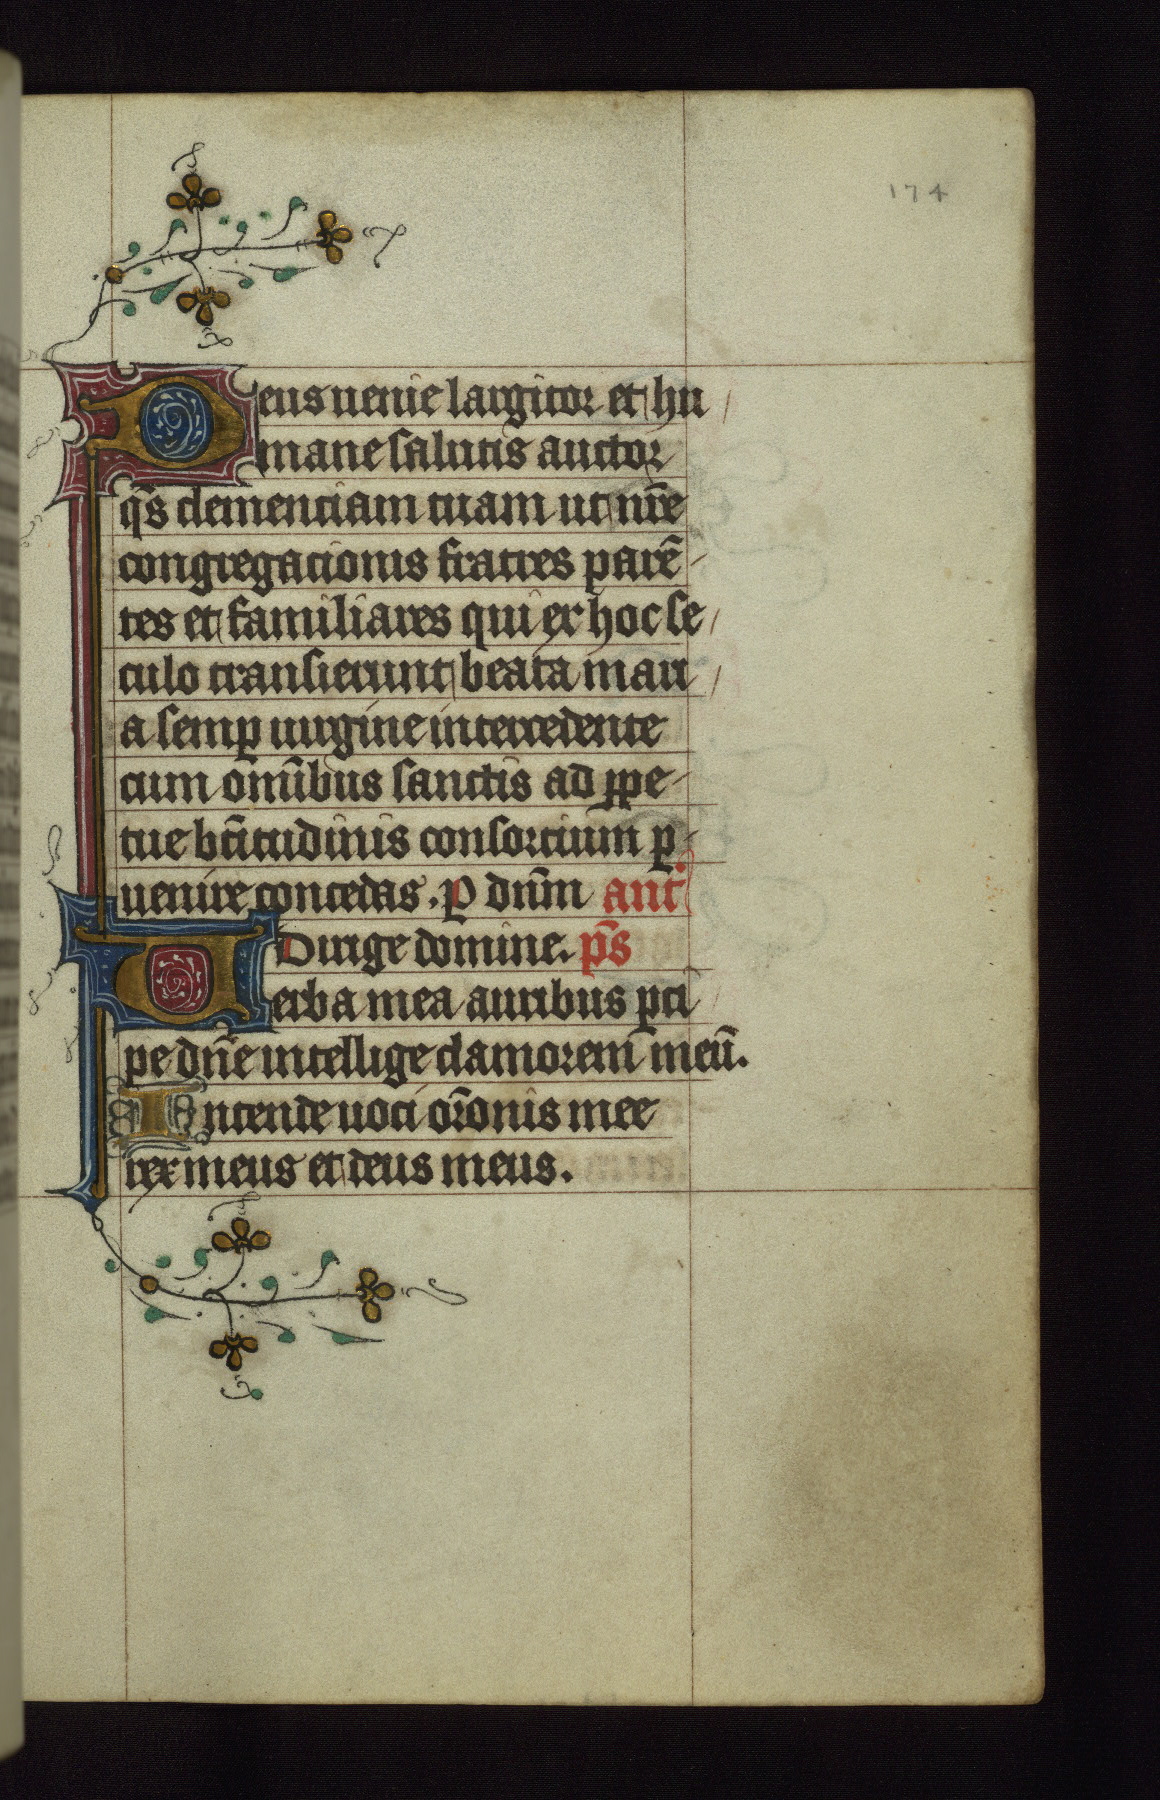 174
Deus uenie largitor et hu
mane salutis auctor
q̄s clementiam tuam ut nr̄e
congregationis fratres parē
tes et familiares qui ex hoc se
culo transierunt beata mari
a semꝑ uirgine intercedente
cum om̄ibus sanctis ad ꝑpe
tue bt̄itudinis consortium ꝑ
uenire concedas. P dn̄m ant̄
Dirige domine. ps̄
Uerba mea auribus ꝑci
pe dn̄e intellige clamorem meū.
Intende uoci or̄onis mee
rex meus et deus meus.